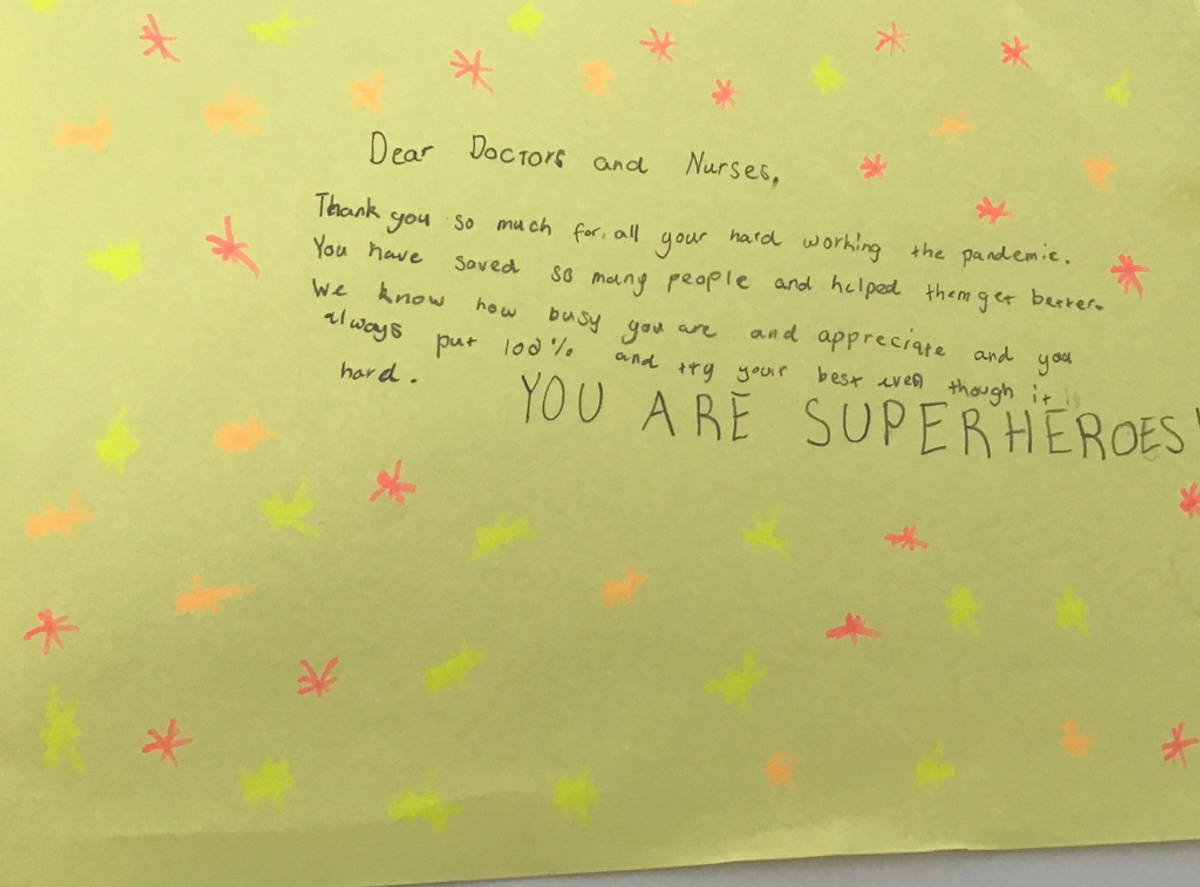 Dear Doctors and Nurses,
Thank you so much for all your hard working the pandemic.
You have saved so many people and helped them get better.
We know how busy you are and appreciate and you
always put 100% and try your best even though it is
hard.
YOU ARE SUPERHEROES!